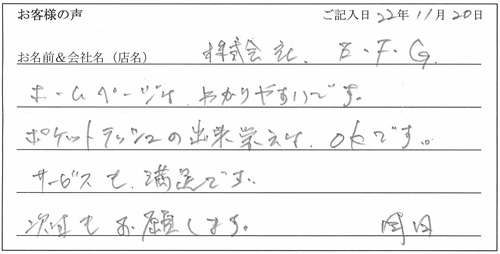 お客様の声 ご記入日 22年 11月 20日
お名前&会社名(店名) 株式会社. E.F.G.
ホームページは、わかりやすいです。
ポケットティッシュの出来栄えは、OKです。
サービスも、満足です。
次回もお願いします。 岡田